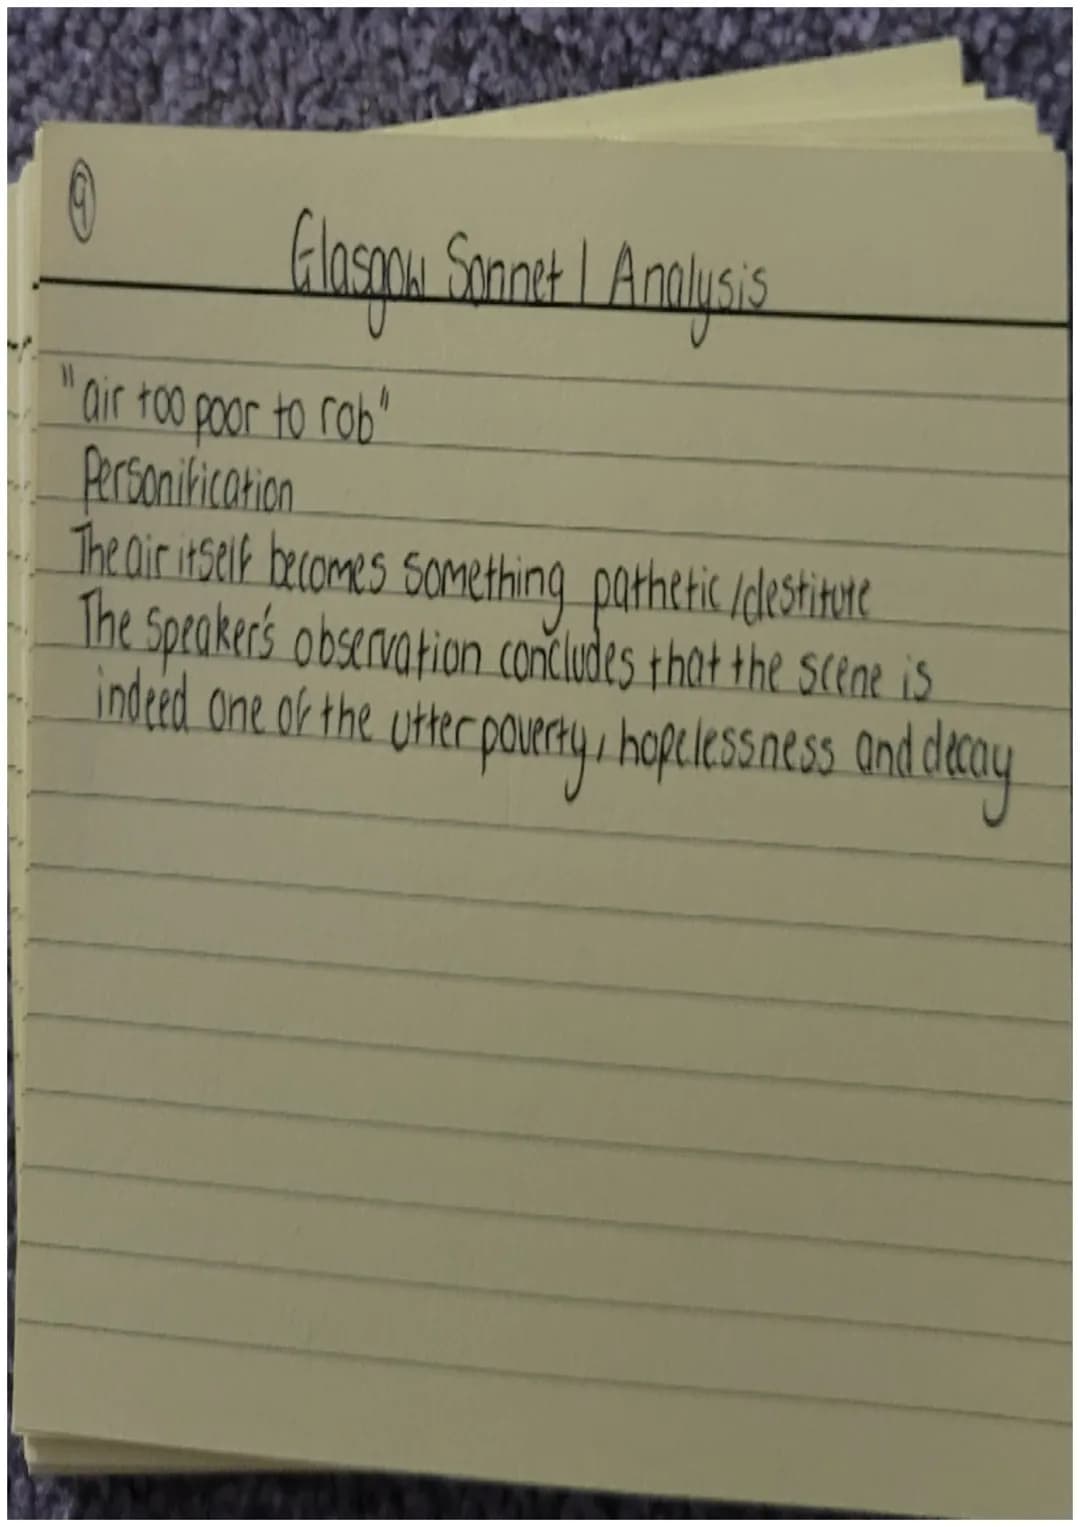 9
Glasgow Sonnet 1 Analysis
"air too poor to rob"
Personification
The air itself becomes something pathetic/destitute
The Speaker's observation concludes that the scene is
indeed one of the utter poverty, hopelessness and decay